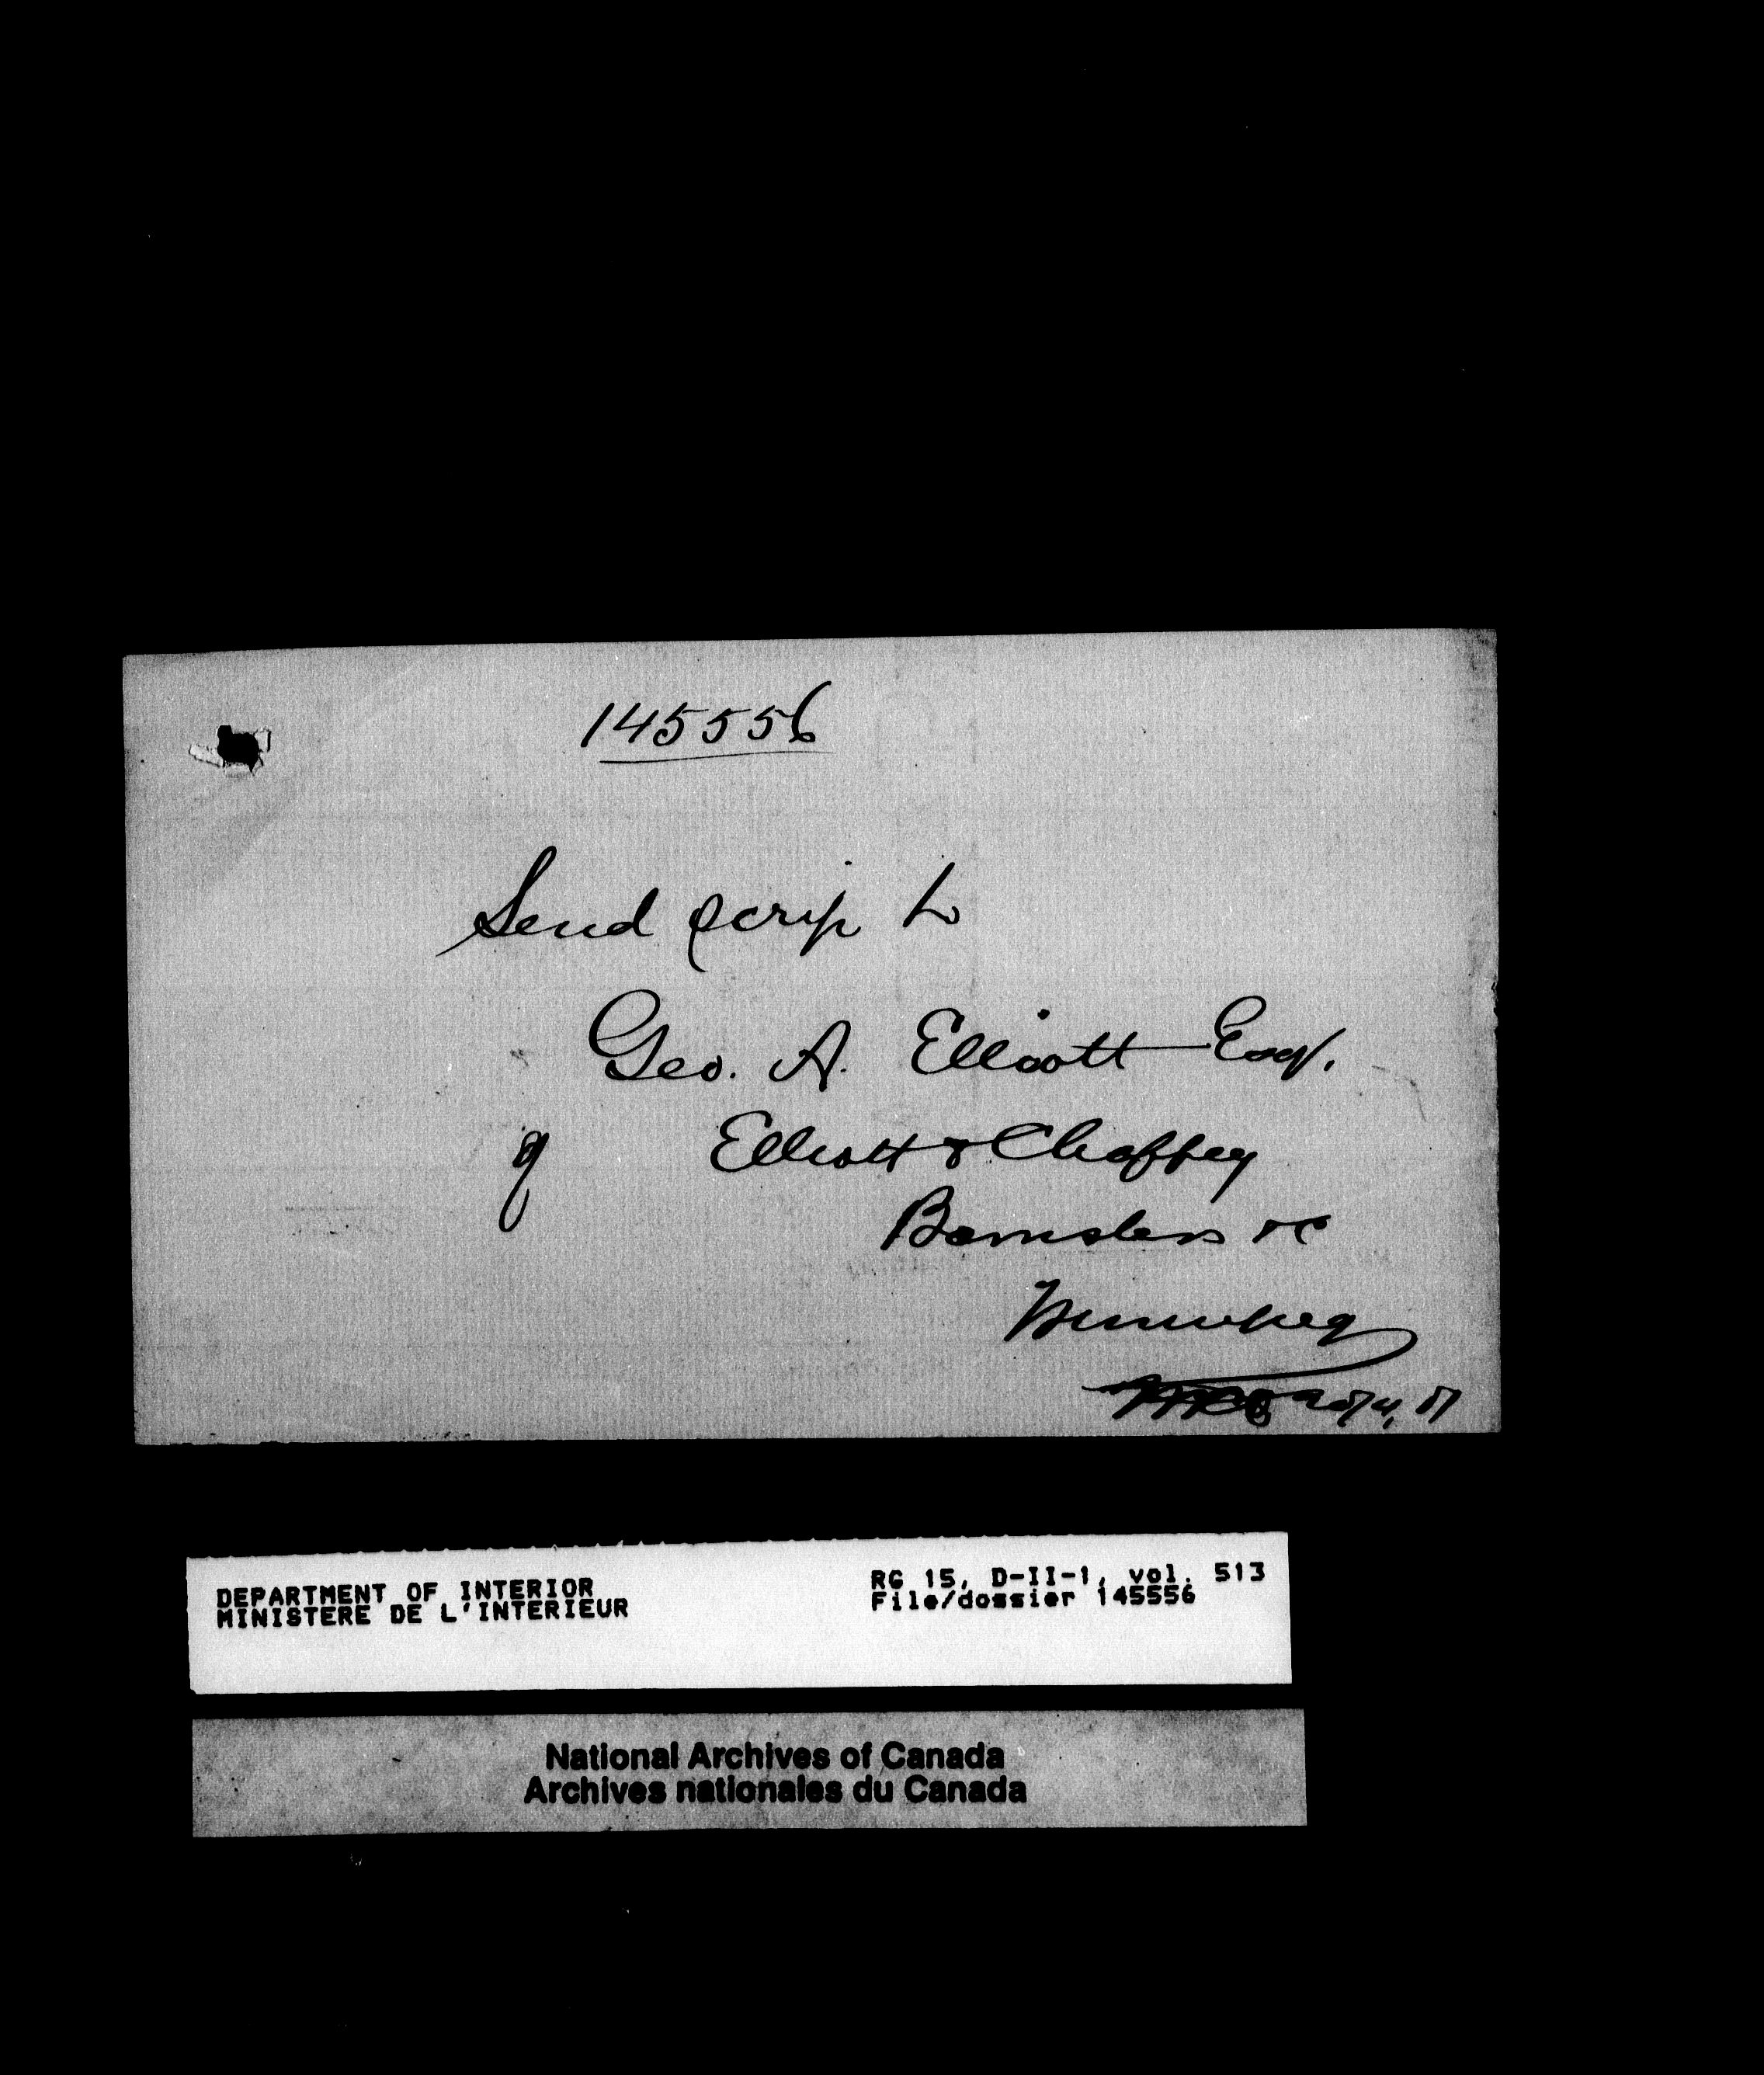 145556
Send scrip to
Geo. A. Elliott Esq.
of Elliott & Chaffey
Barristers &c
Winnipeg
DEPARTMENT OF INTERIOR
MINISTERE DE L'INTERIEUR
RG 15, D-II-1, vol. 513
File/dossier 145556
National Archives of Canada
Archives nationales du Canada